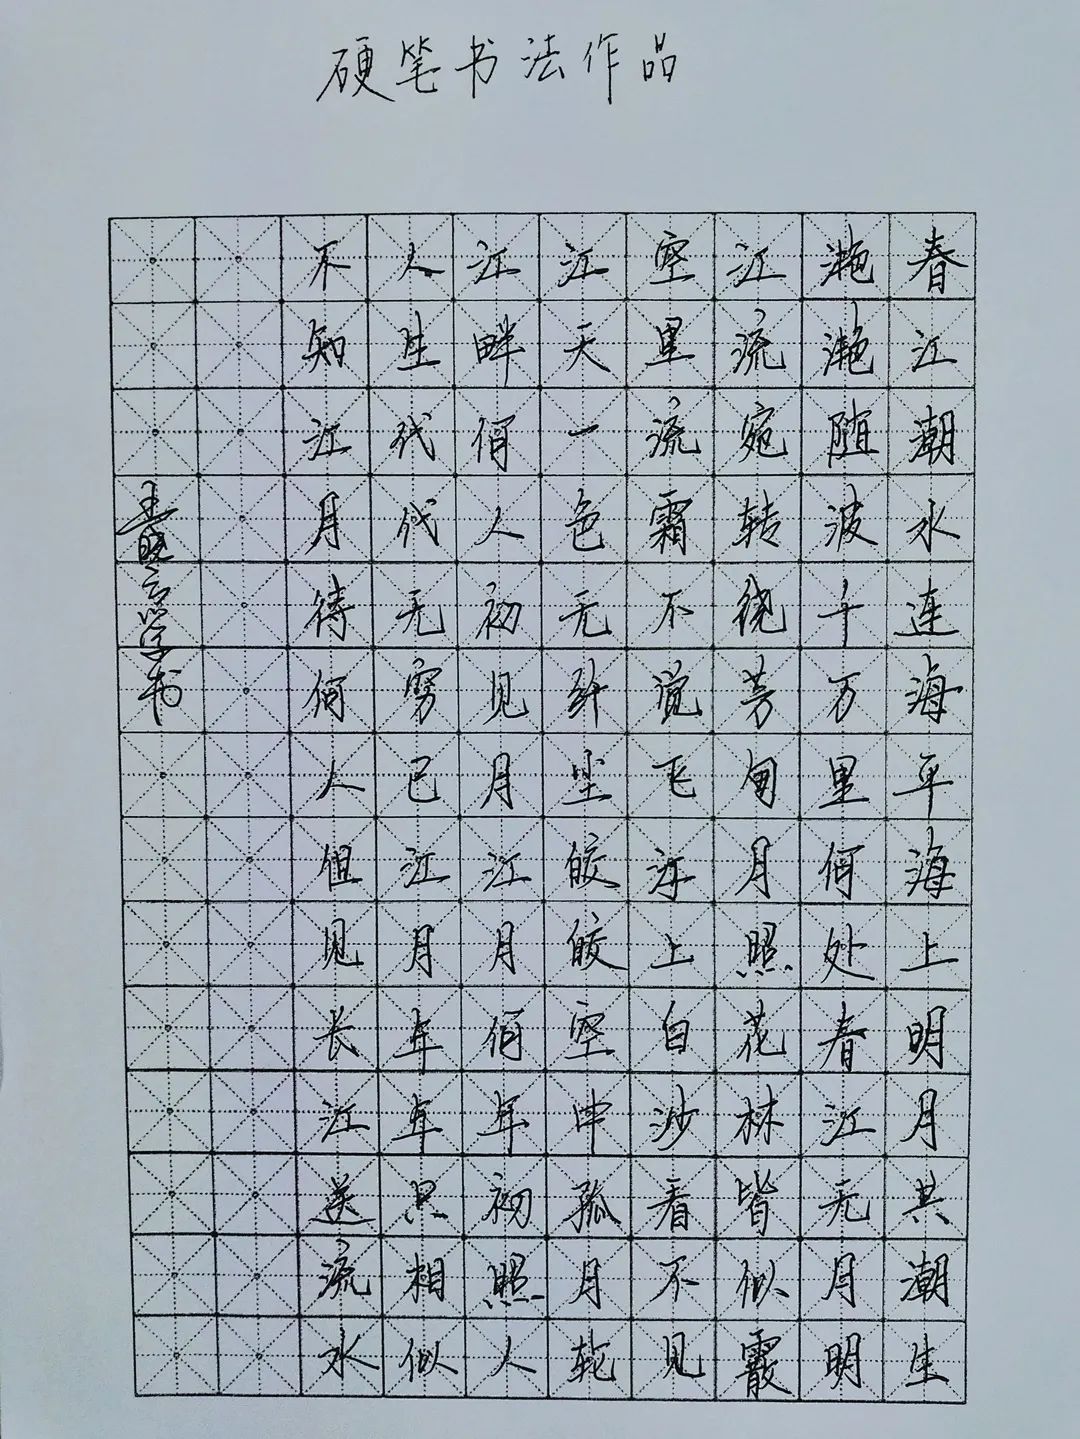 硬笔书法作品
春江潮水连海平海上明月共潮生
滟滟随波千万里何处春江无月明
江流宛转绕芳甸月照花林皆似霰
空里流霜不觉飞汀上白沙看不见
江天一色无纤尘皎皎空中孤月轮
江畔何人初见月江月何年初照人
人生代代无穷已江月年年只相似
不知江月待何人但见长江送流水
晓云学书